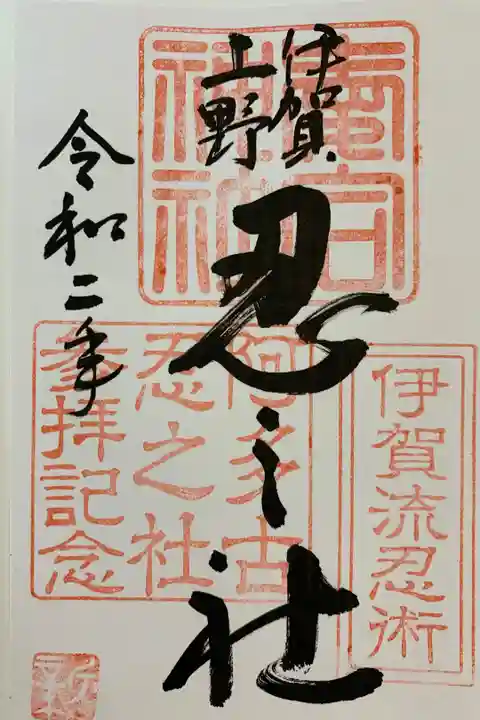 伊賀
上野
忍之社
令和二年
愛宕
神社
伊賀流忍術
阿多古
忍之社
参拝記念